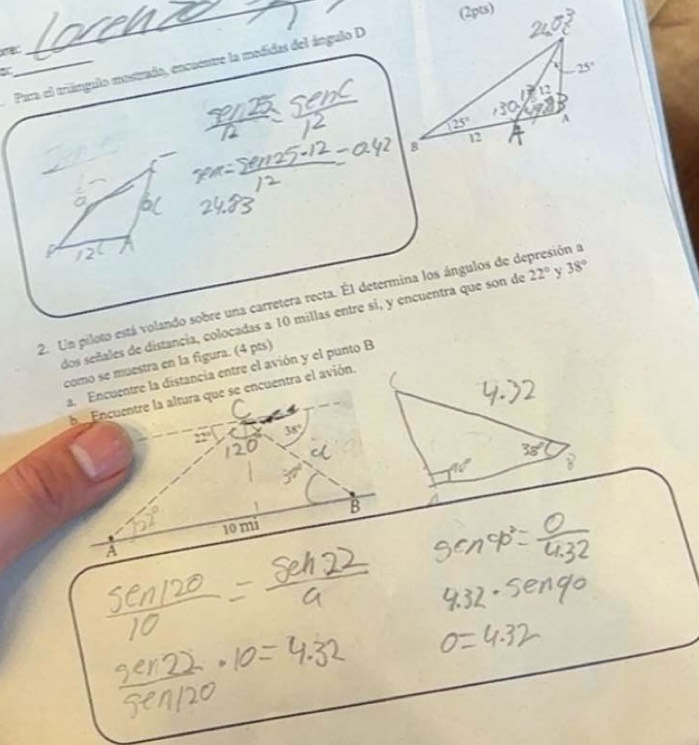 Lorenzo
(2pts)
Para el triángulo mostrado, encuentre la medidas del ángulo D
sen25/12 = senC/12
sen = sen25·12/12 = 0.42
24.83
12
A
25°
12
25°
B
12
A
A
2. Un piloto está volando sobre una carretera recta. Él determina los ángulos de depresión a
dos señales de distancia, colocadas a 10 millas entre sí, y encuentra que son de 22° y 38°
como se muestra en la figura. (4 pts)
a. Encuentre la distancia entre el avión y el punto B
b. Encuentre la altura que se encuentra el avión.
C
22°
38°
120
a
22°
A
10 mi
B
C
4.32
90°
38°
B
sen120/10 = sen22/a
sen22/sen120 · 10 = 4.32
sen90° = O/4.32
4.32 · sen90
O = 4.32